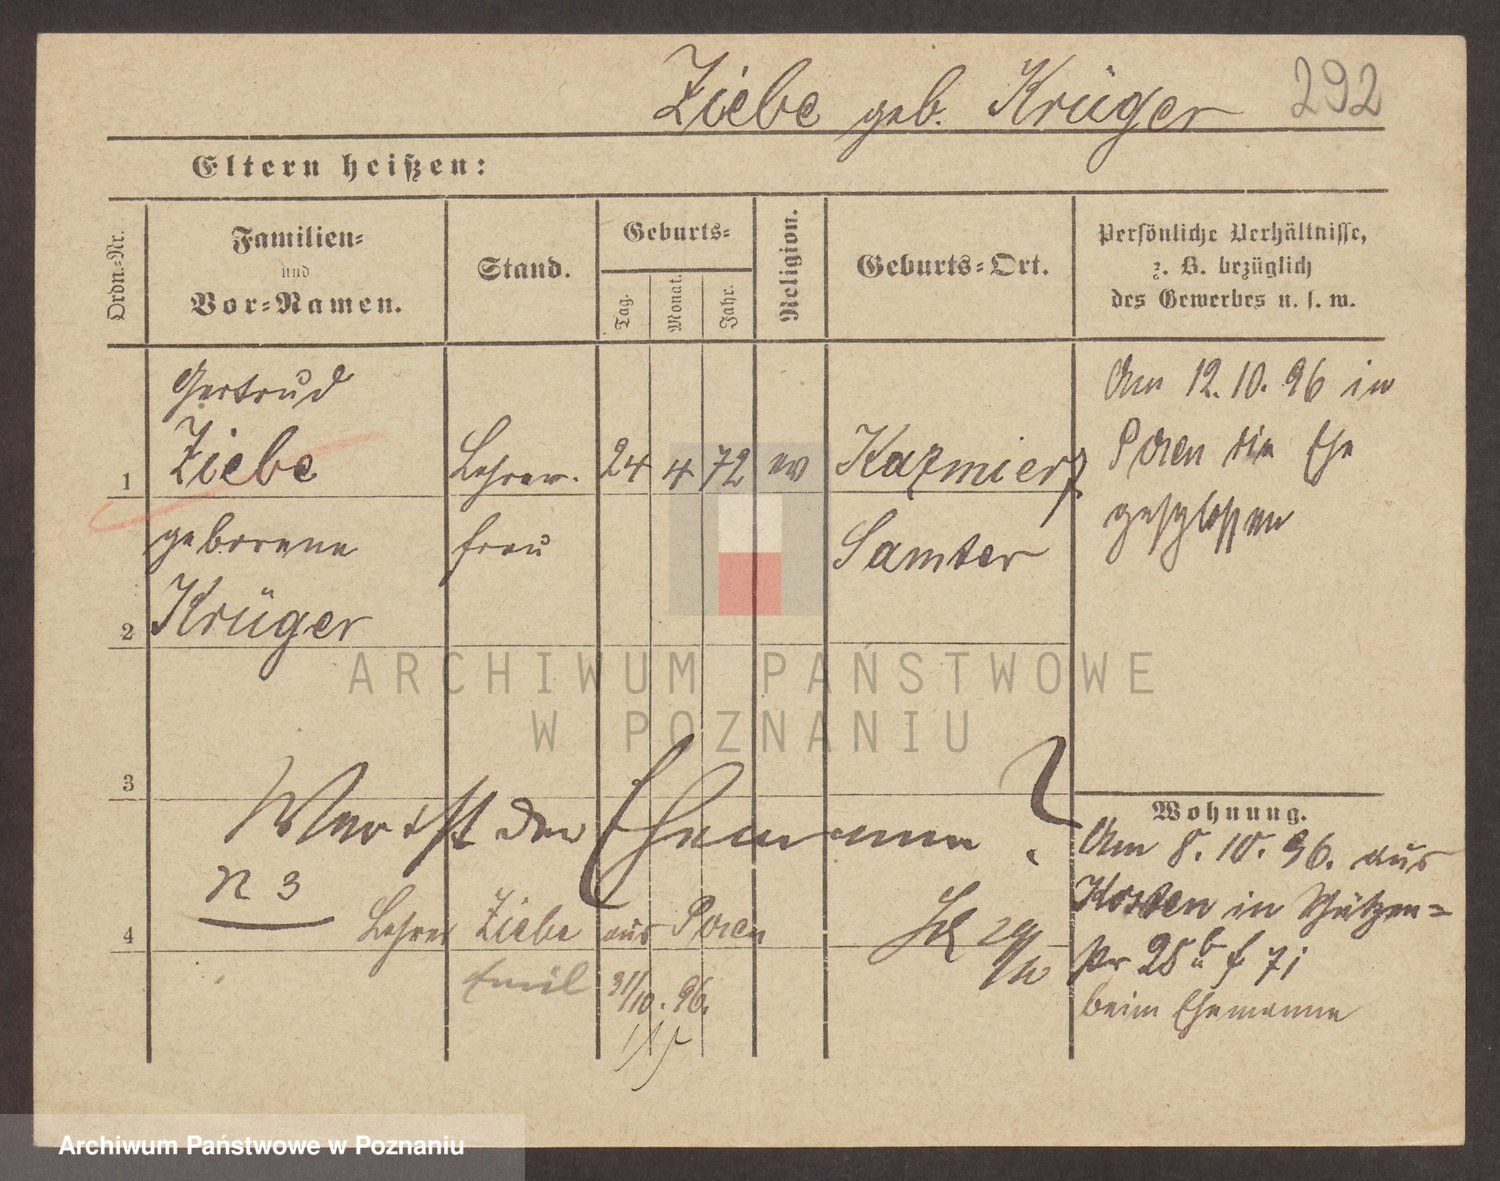 Ziebe geb. Krüger 292
Eltern heißen:
Ordn.-Nr.
Familien-
und
Vor-Namen.
Stand.
Geburts-
Tag.
Monat.
Jahr.
Religion.
Geburts-Ort.
Persönliche Verhältnisse,
z. B. bezüglich
des Gewerbes u. s. w.
Gertrud
1 Ziebe Lehrer- 24 4 72 ev Kazmierz
geborene frau Samter
2 Krüger
Am 12.10.96 in
Posen die Ehe
geschlossen
ARCHIWUM PAŃSTWOWE
W POZNANIU
3
Wer ist der Ehemann ?
N 3
4 Lehrer Ziebe aus Posen
Emil 31/10.96.
Wohnung.
Am 8.10.96. aus
Kosten in Schützen-
str 25 b
beim Ehemanne
Archiwum Państwowe w Poznaniu